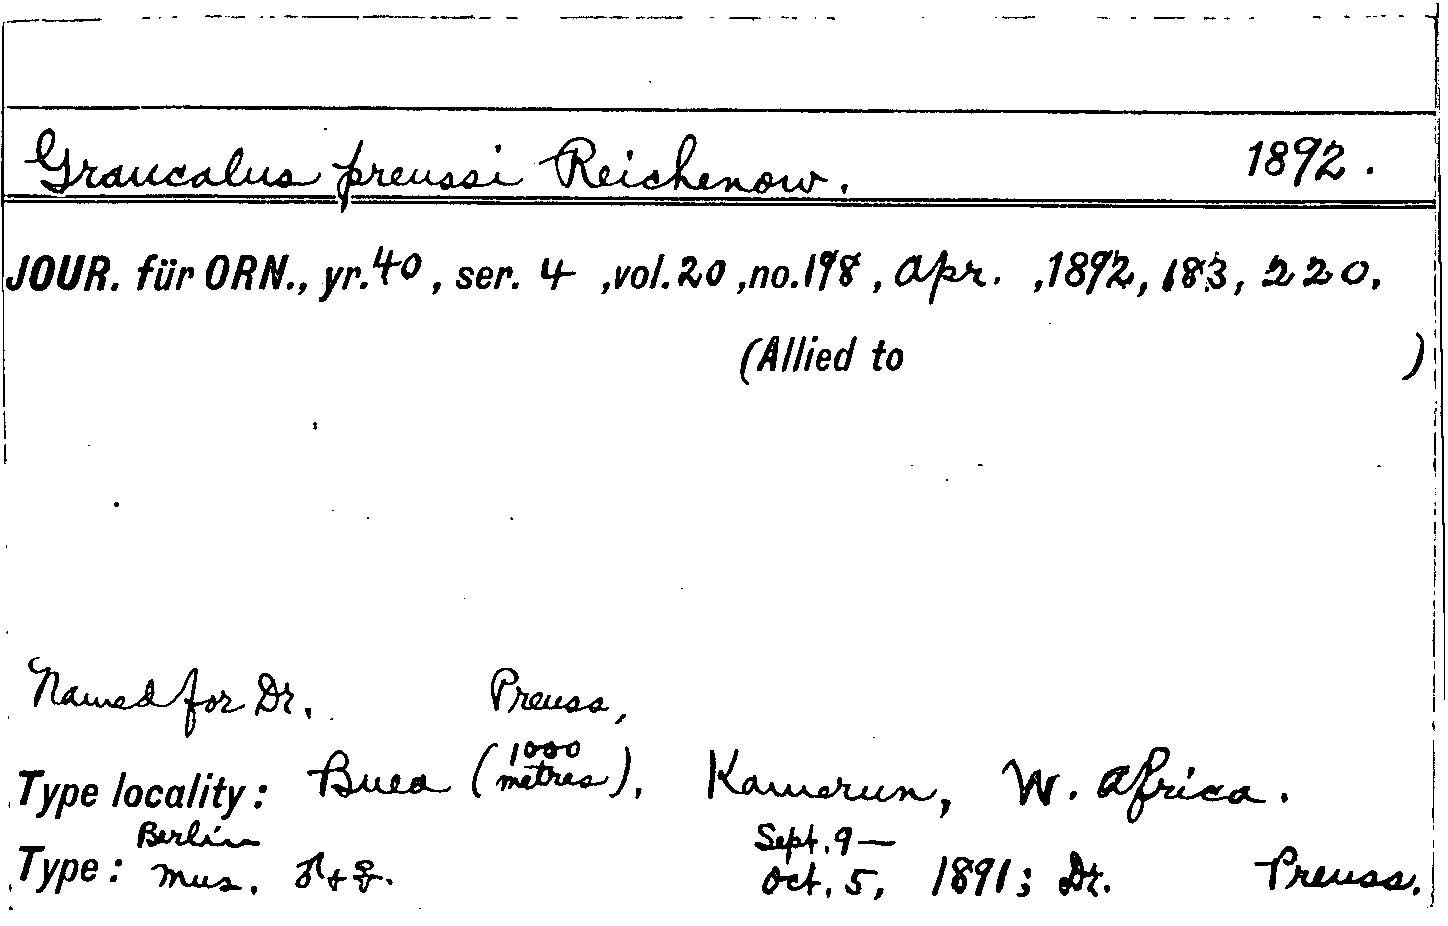 Graucalus preussi Reichenow. 1892.
JOUR. für ORN., yr. 40, ser. 4, vol. 20, no. 198, Apr., 1892, 183, 220.
(Allied to )
Named for Dr. Preuss,
Type locality: Buea (1000 metres), Kamerun, W. Africa.
Type: Berlin Mus. ♂ + ♀. Sept. 9 — Oct. 5, 1891; Dr. Preuss.